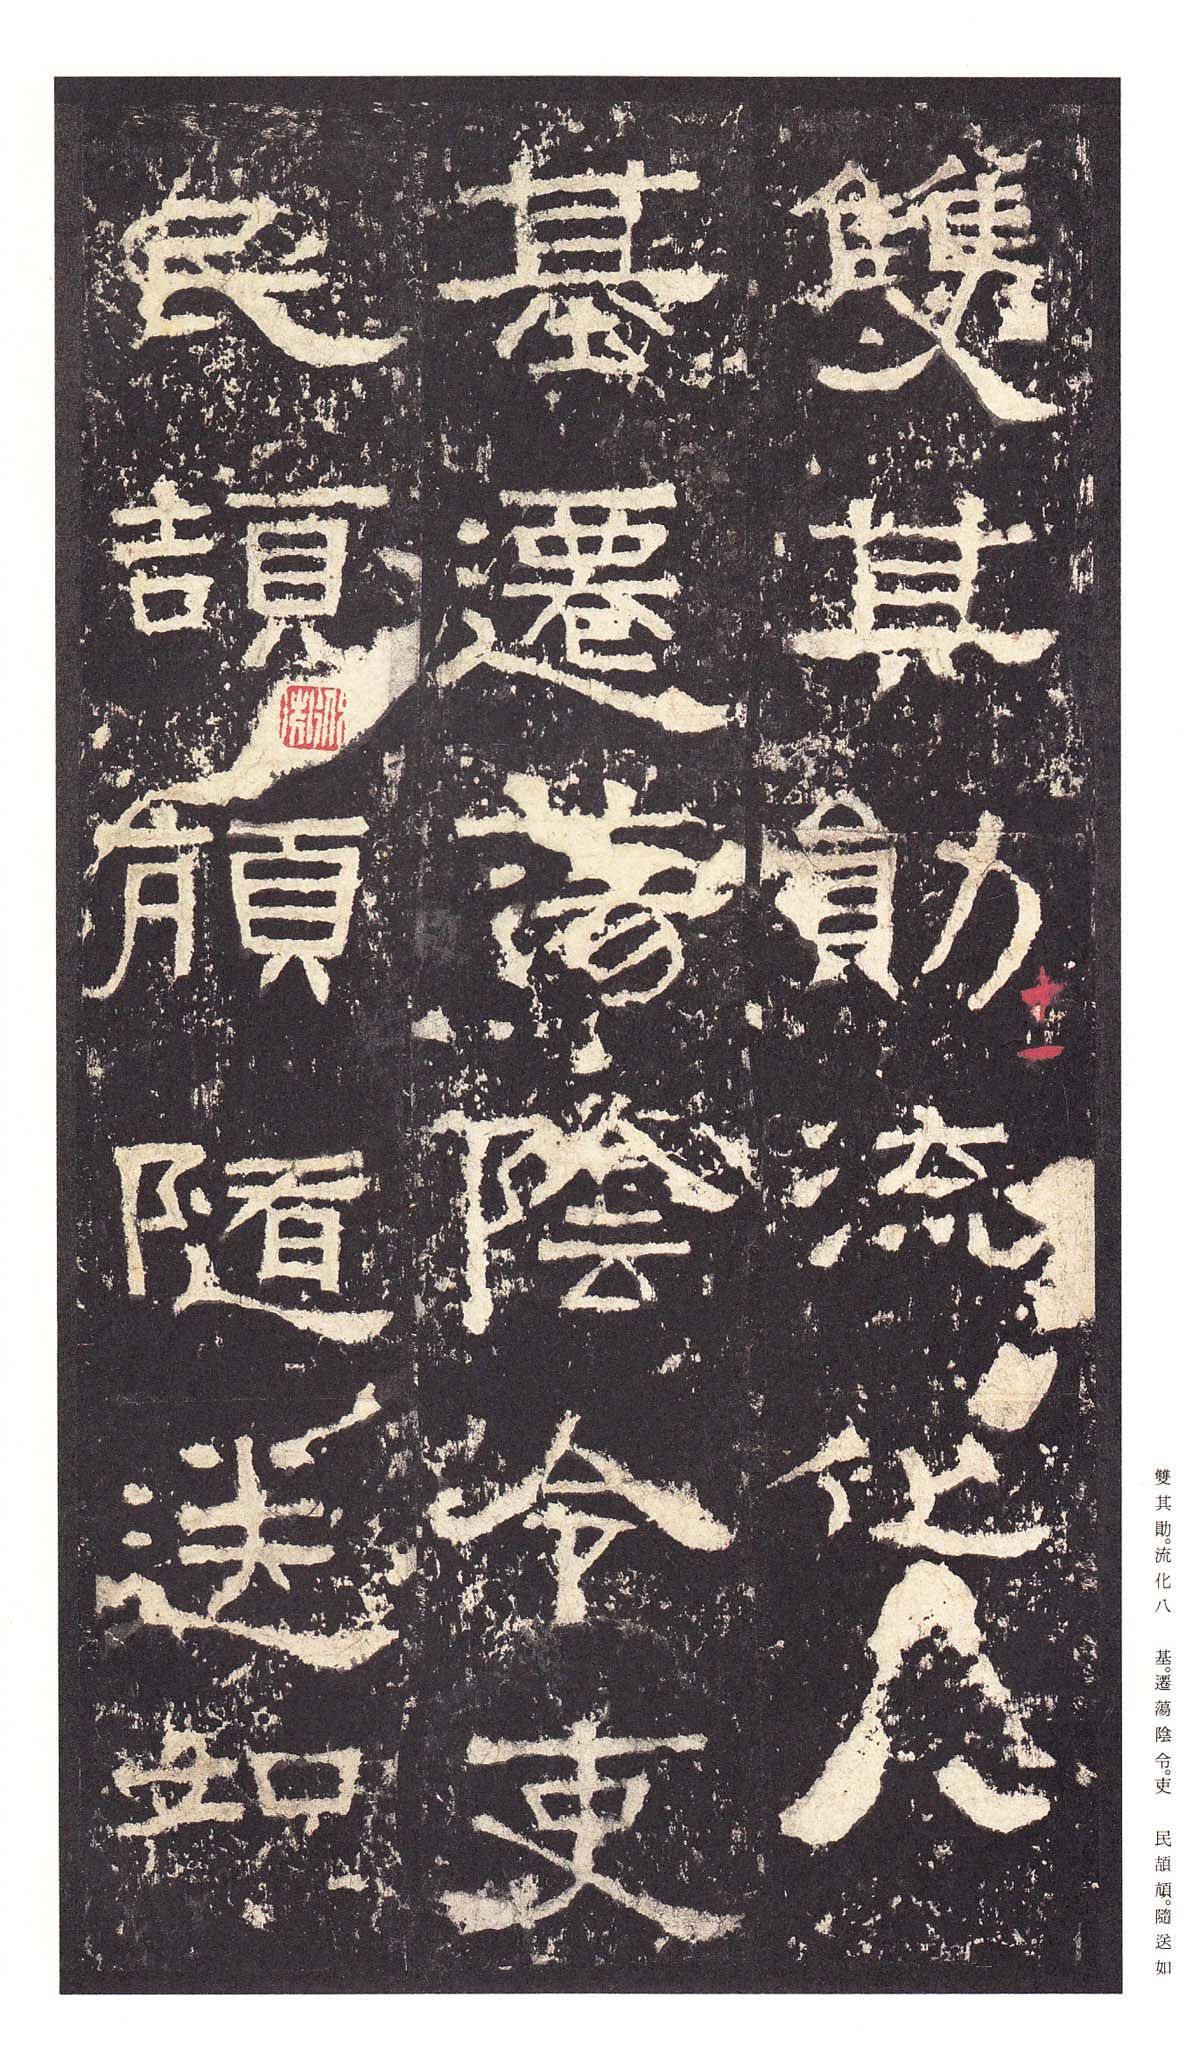 雙其勛流化八
基遷蕩陰令吏
民頡頏隨送如
十一
雙其勛。流化八　基。遷蕩陰令。吏　民頡頏。隨送如